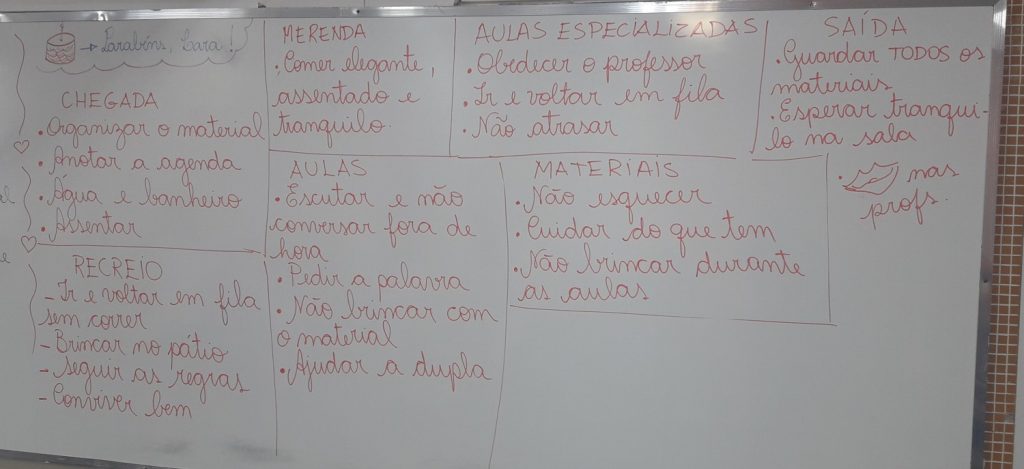 Parabéns, Lara!
CHEGADA
• Organizar o material
• Anotar a agenda
• Água e banheiro
• Assentar
RECREIO
- Ir e voltar em fila
sem correr
- Brincar no pátio
- Seguir as regras
- Conviver bem
MERENDA
• Comer elegante,
assentado e
tranquilo.
AULAS
• Escutar e não
conversar fora de
hora
• Pedir a palavra
• Não brincar com
o material
• Ajudar a dupla
AULAS ESPECIALIZADAS
• Obedecer o professor
• Ir e voltar em fila
• Não atrasar
MATERIAIS
• Não esquecer
• Cuidar do que tem
• Não brincar durante
as aulas
SAÍDA
• Guardar TODOS os
materiais
• Esperar tranqui-
lo na sala
• nas
profs.